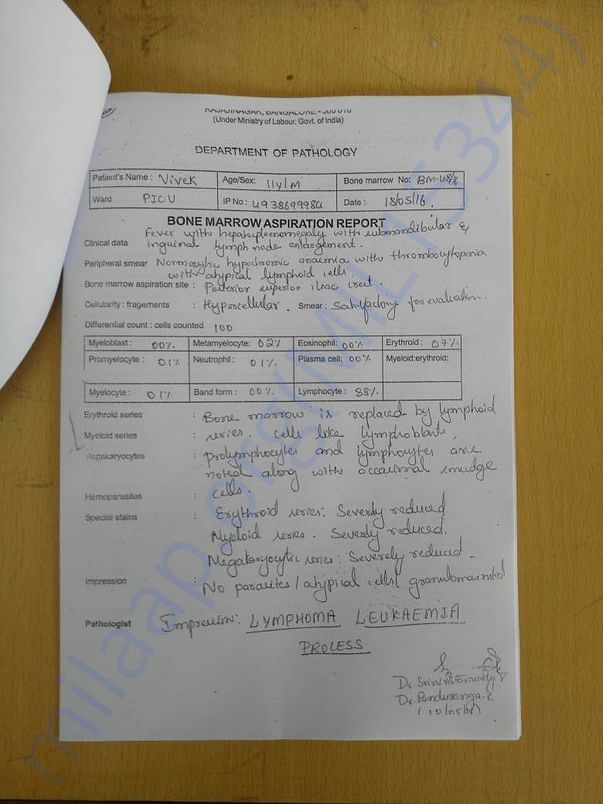 RAJAJINAGAR, BANGALORE - 560 010
(Under Ministry of Labour, Govt. of India)
DEPARTMENT OF PATHOLOGY
Patient's Name : Vivek Age/Sex: 11y/M Bone marrow No: BM-48/8
Ward PICU IP No: 4938699984 Date : 18/05/16.
BONE MARROW ASPIRATION REPORT
Fever with hepatosplenomegaly with submandibular &
Clinical data inguinal lymph node enlargement.
Peripheral smear Normocytic hypochromic anaemia with thrombocytopenia
with atypical lymphoid cells.
Bone marrow aspiration site : Posterior superior iliac crest.
Cellularity : fragements : Hypercellular. Smear: Satisfactory for evaluation.
Differential count : cells counted 100
Myeloblast : 00%. Metamyelocyte: 02% Eosinophil: 00% Erythroid : 07%.
Promyelocyte : 01% Neutrophil : 01%. Plasma cell: 00% Myeloid:erythroid:
Myelocyte : 01% Band form : 00% Lymphocyte : 88%.
Erythroid series : Bone marrow is replaced by lymphoid
Myeloid series : series. cells like lymphoblasts,
Megakaryocytes : prolymphocytes and lymphocytes are
noted along with occasional smudge
Hemoparasites : cells.
Special stains : Erythroid series: Severely reduced
Myeloid series : Severely reduced.
Megakaryocytic series : Severely reduced.
Impression : No parasites / atypical cells / granuloma noted
Pathologist Impression: LYMPHOMA LEUKAEMIA
PROLESS
Dr. Srinivasamurthy. V
Dr. Panduranga. C
milaap.org/(MIL-115344)